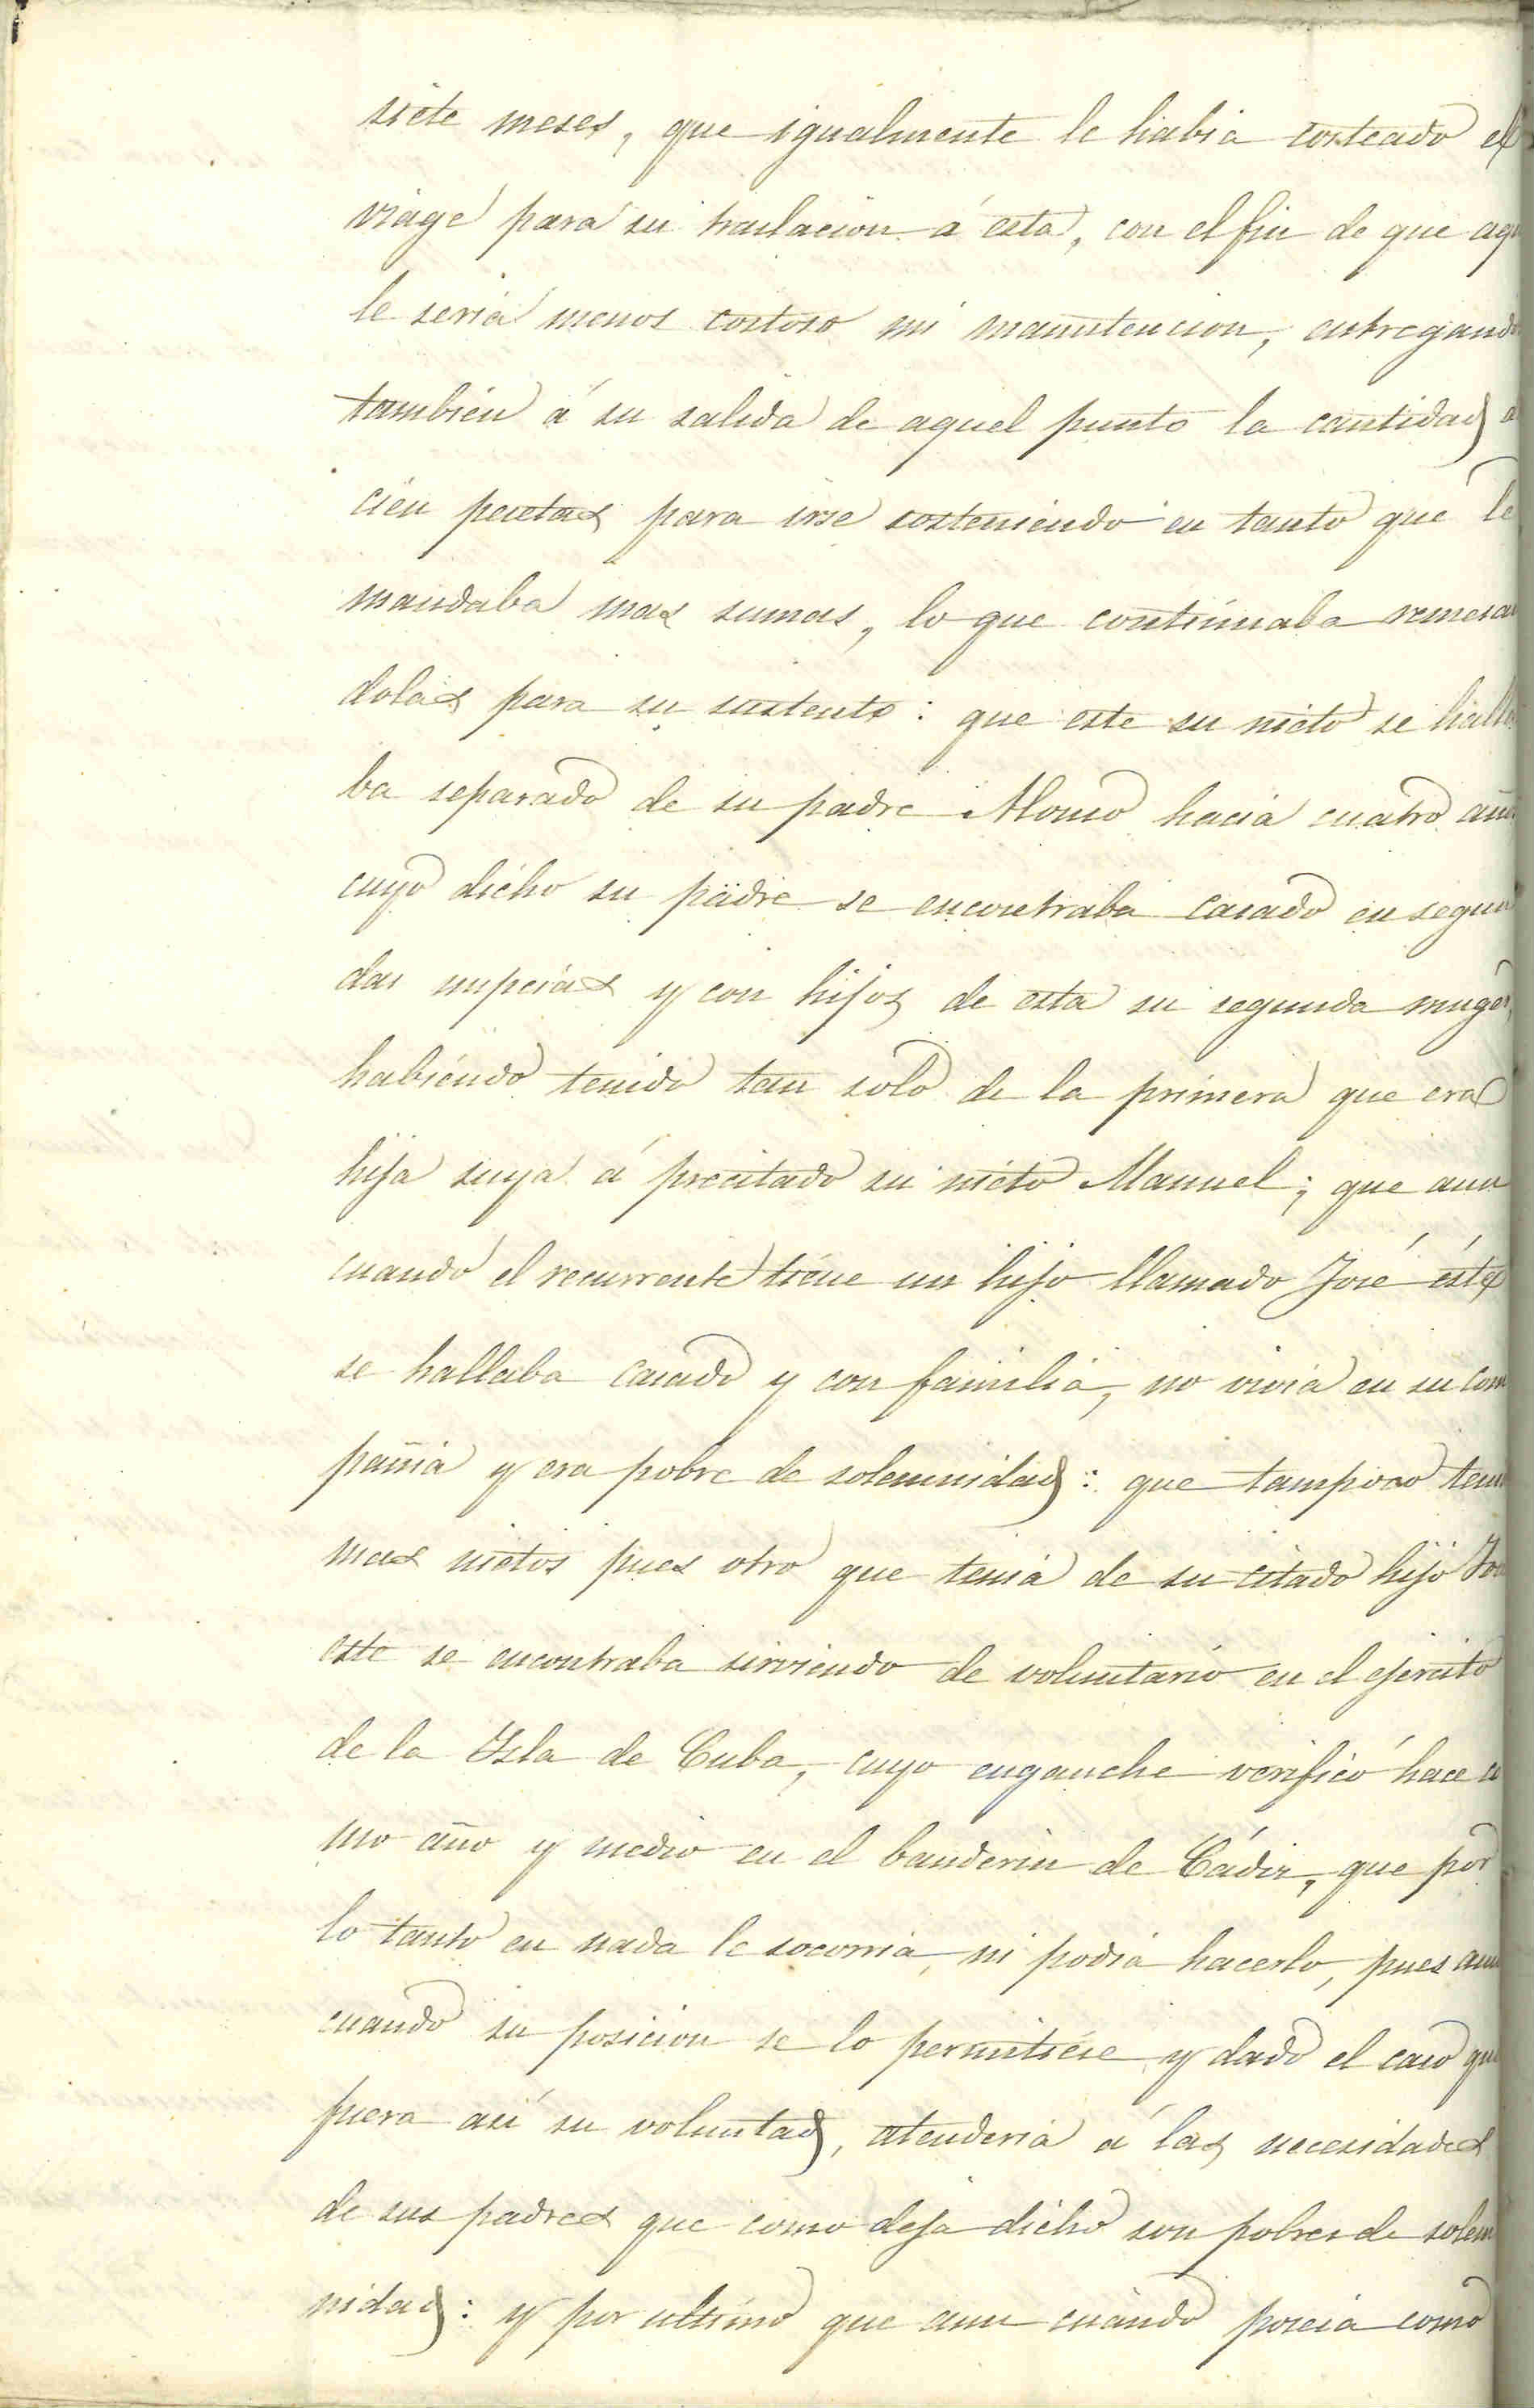 siete meses, que igualmente le habia costeado el
viage para su traslacion á esta, con el fin de que aqu
le seria menos costoso mi manutencion, entregando
tambien á su salida de aquel punto la cantidad
cien pecetas para irse sosteniendo en tanto que le
mandaba mas sumas, lo que continuaba remesan
dolas para su sustento: que este su nieto se halla
ba separado de su padre Alonso hacia cuatro año
cuyo dicho su padre se encontraba casado en segun
das nupcias y con hijos de esta su segunda muger,
habiendo tenido tan solo de la primera que era
hija suya á precitado su nieto Manuel; que aun
cuando el recurrente tiene un hijo llamado José éste
se hallaba casado y con familia, no vivia en su com
pañia y era pobre de solemnidad: que tampoco teni
mas nietos pues otro que tenia de su citado hijo José
este se encontraba sirviendo de voluntario en el ejercito
de la Isla de Cuba, cuyo enganche verificó hace co
mo año y medio en el banderin de Cádiz, que por
lo tanto en nada le socorria, ni podia hacerlo, pues aun
cuando su posicion se lo permitiese y dado el caso que
fuera asi su voluntad, atenderia á las necesidades
de sus padres que como deja dicho son pobres de solem
nidad: y por ultimo que aun cuando poseia como